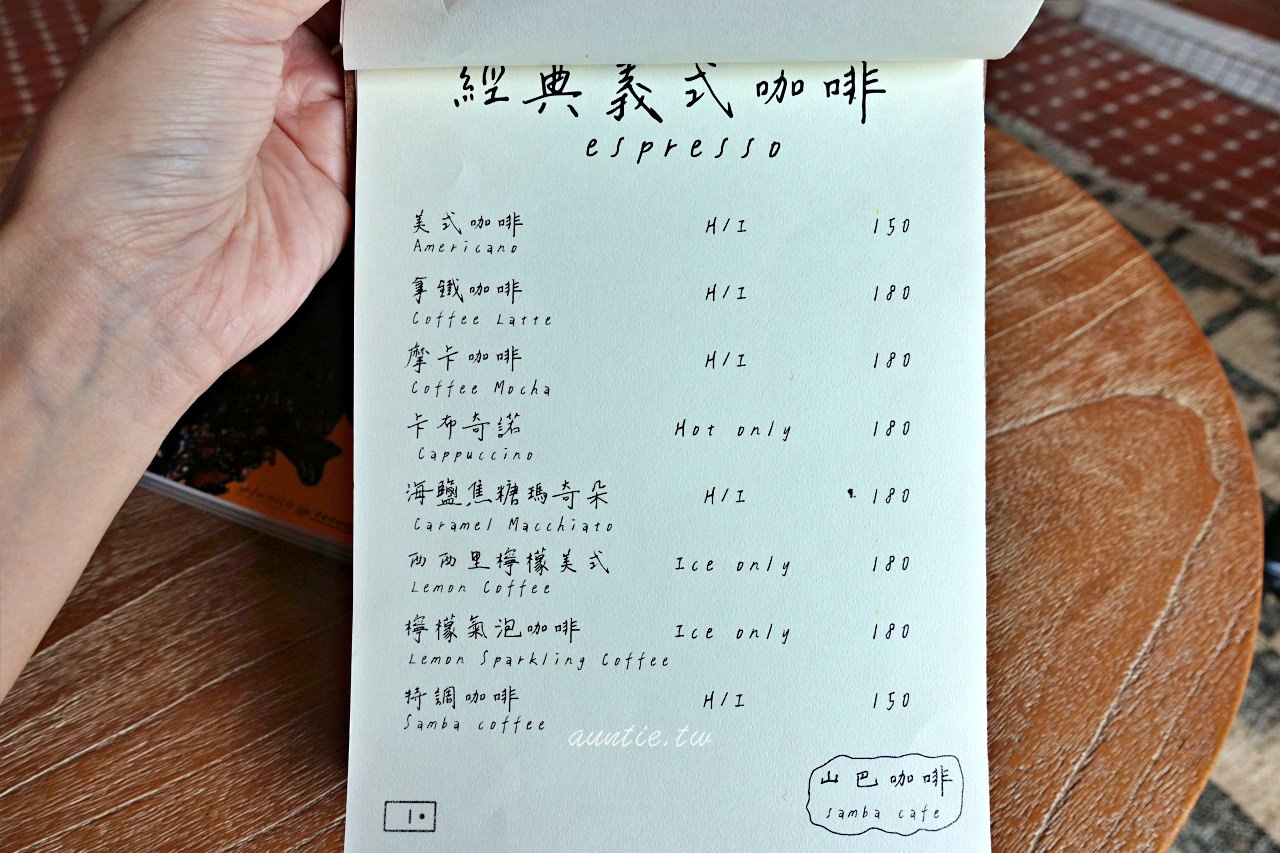 經典義式咖啡
espresso
美式咖啡 H/I 150
Americano
拿鐵咖啡 H/I 180
Coffee Latte
摩卡咖啡 H/I 180
Coffee Mocha
卡布奇諾 Hot only 180
Cappuccino
海鹽焦糖瑪奇朵 H/I 180
Caramel Macchiato
西西里檸檬美式 Ice only 180
Lemon Coffee
檸檬氣泡咖啡 Ice only 180
Lemon Sparkling Coffee
特調咖啡 H/I 150
Samba coffee
auntie.tw
山巴咖啡
samba cafe
1.